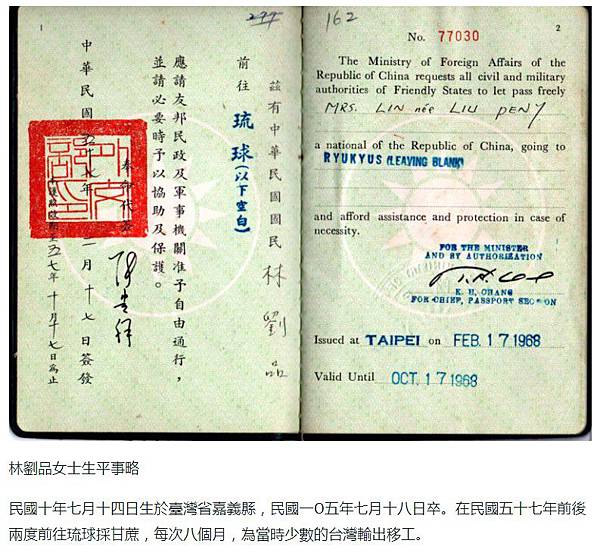 1
茲有中華民國國民 林劉品
前往 琉球(以下空白)
應請友邦民政及軍事機關准予自由通行，
並請必要時予以協助及保護。
奉命代簽
中華民國五十七年二月十七日簽發
五七年十月十七日為止
162
2
No. 77030
The Ministry of Foreign Affairs of the
Republic of China requests all civil and military
authorities of Friendly States to let pass freely
MRS. LIN née LIU PENY
a national of the Republic of China, going to
RYUKYUS (LEAVING BLANK)
and afford assistance and protection in case of
necessity.
FOR THE MINISTER
AND BY AUTHORIZATION
K. H. CHANG
FOR CHIEF, PASSPORT SECTION
Issued at TAIPEI on FEB. 17 1968
Valid Until OCT. 17 1968
林劉品女士生平事略
民國十年七月十四日生於臺灣省嘉義縣，民國一O五年七月十八日卒。在民國五十七年前後
兩度前往琉球採甘蔗，每次八個月，為當時少數的台灣輸出移工。